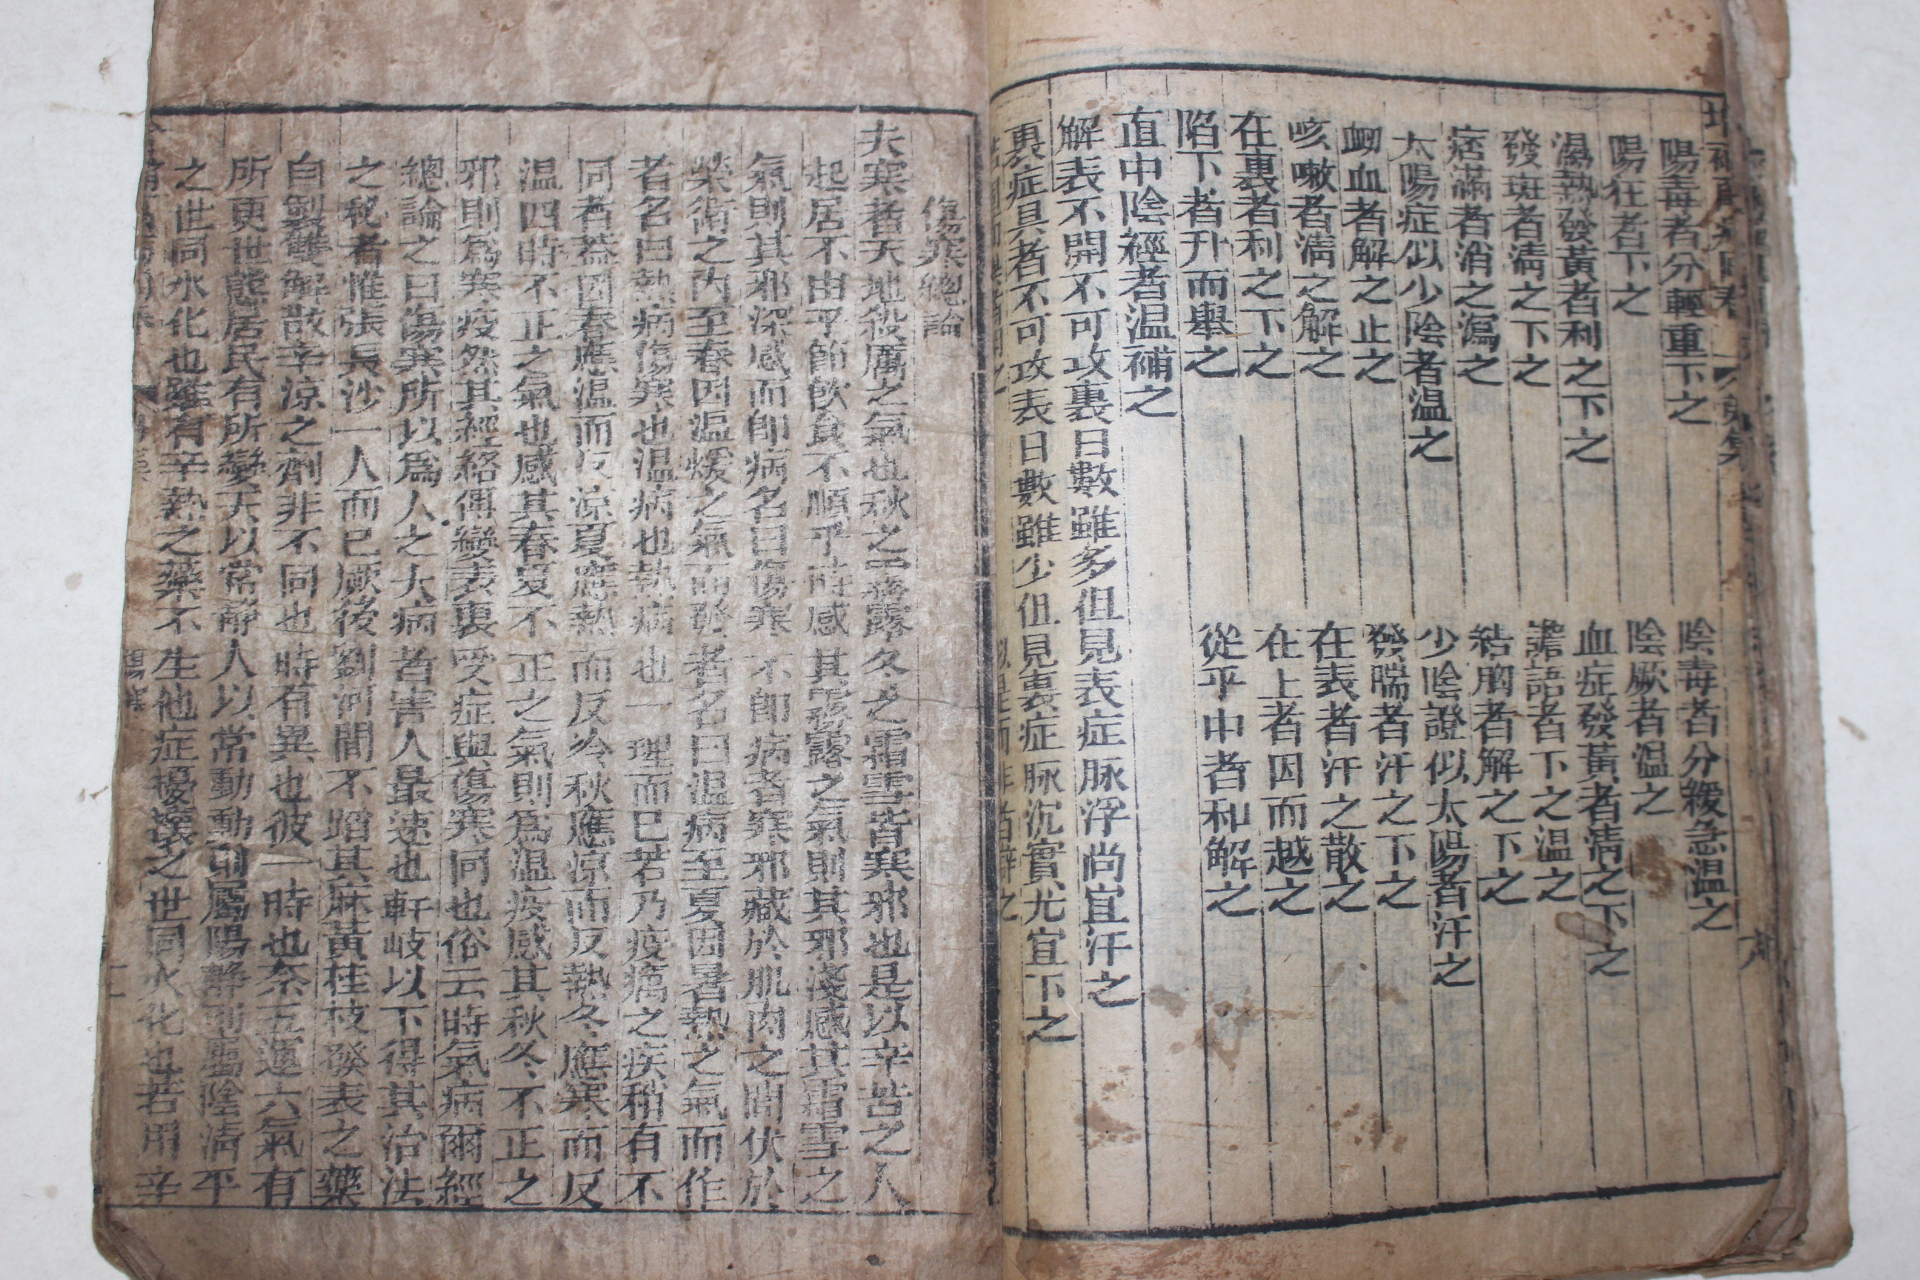 陽毒者分輕重下之
陰毒者分緩急温之
陽狂者下之
陰厥者温之
濕熱發黃者利之下之
血症發黃者清之下之
發斑者清之下之
譫語者下之温之
痞滿者消之瀉之
結胸者解之下之
太陽症似少陰者温之
少陰證似太陽者汗之
衂血者解之止之
發喘者汗之下之
咳嗽者清之解之
在表者汗之散之
在裏者利之下之
在上者因而越之
陷下者升而舉之
從乎中者和解之
直中陰經者温補之
解表不開不可攻裏日數雖多但見表症脉浮尚宜汗之
裏症具者不可攻表日數雖少但見裏症脉沉實尤宜下之
傷寒總論
夫寒者天地殺厲之氣也秋之霧露冬之霜雪皆寒邪也是以辛苦之人
起居不由乎節飲食不順乎時感其霧露之氣則其邪淺感其霜雪之
氣則其邪深感而即病名曰傷寒不即病者寒邪藏於肌肉之間伏於
榮衛之內至春因温煖之氣而發者名曰温病至夏因暑熱之氣而作
者名曰熱病傷寒也温病也熱病也一理而已若乃疫癘之疾稍有不
同者蓋因春應温而反凉夏應熱而反冷秋應凉而反熱冬應寒而反
温四時不正之氣也感其春夏不正之氣則爲温疫感其秋冬不正之
邪則爲寒疫然其經絡傳變表裏受症與傷寒同也俗云時氣病爾經
總論之曰傷寒所以爲人之大病者害人最速也軒岐以下得其治法
之秘者惟張長沙一人而已厥後劉河間不蹈其麻黃桂枝發表之藥
自製雙解散辛凉之劑非不同也時有異也彼一時也奈五運六氣有
所更世態居民有所變天以常靜人以常動動則屬陽靜則屬陰清平
之世同水化也雖有辛熱之藥不生他症擾攘之世同火化也若用辛